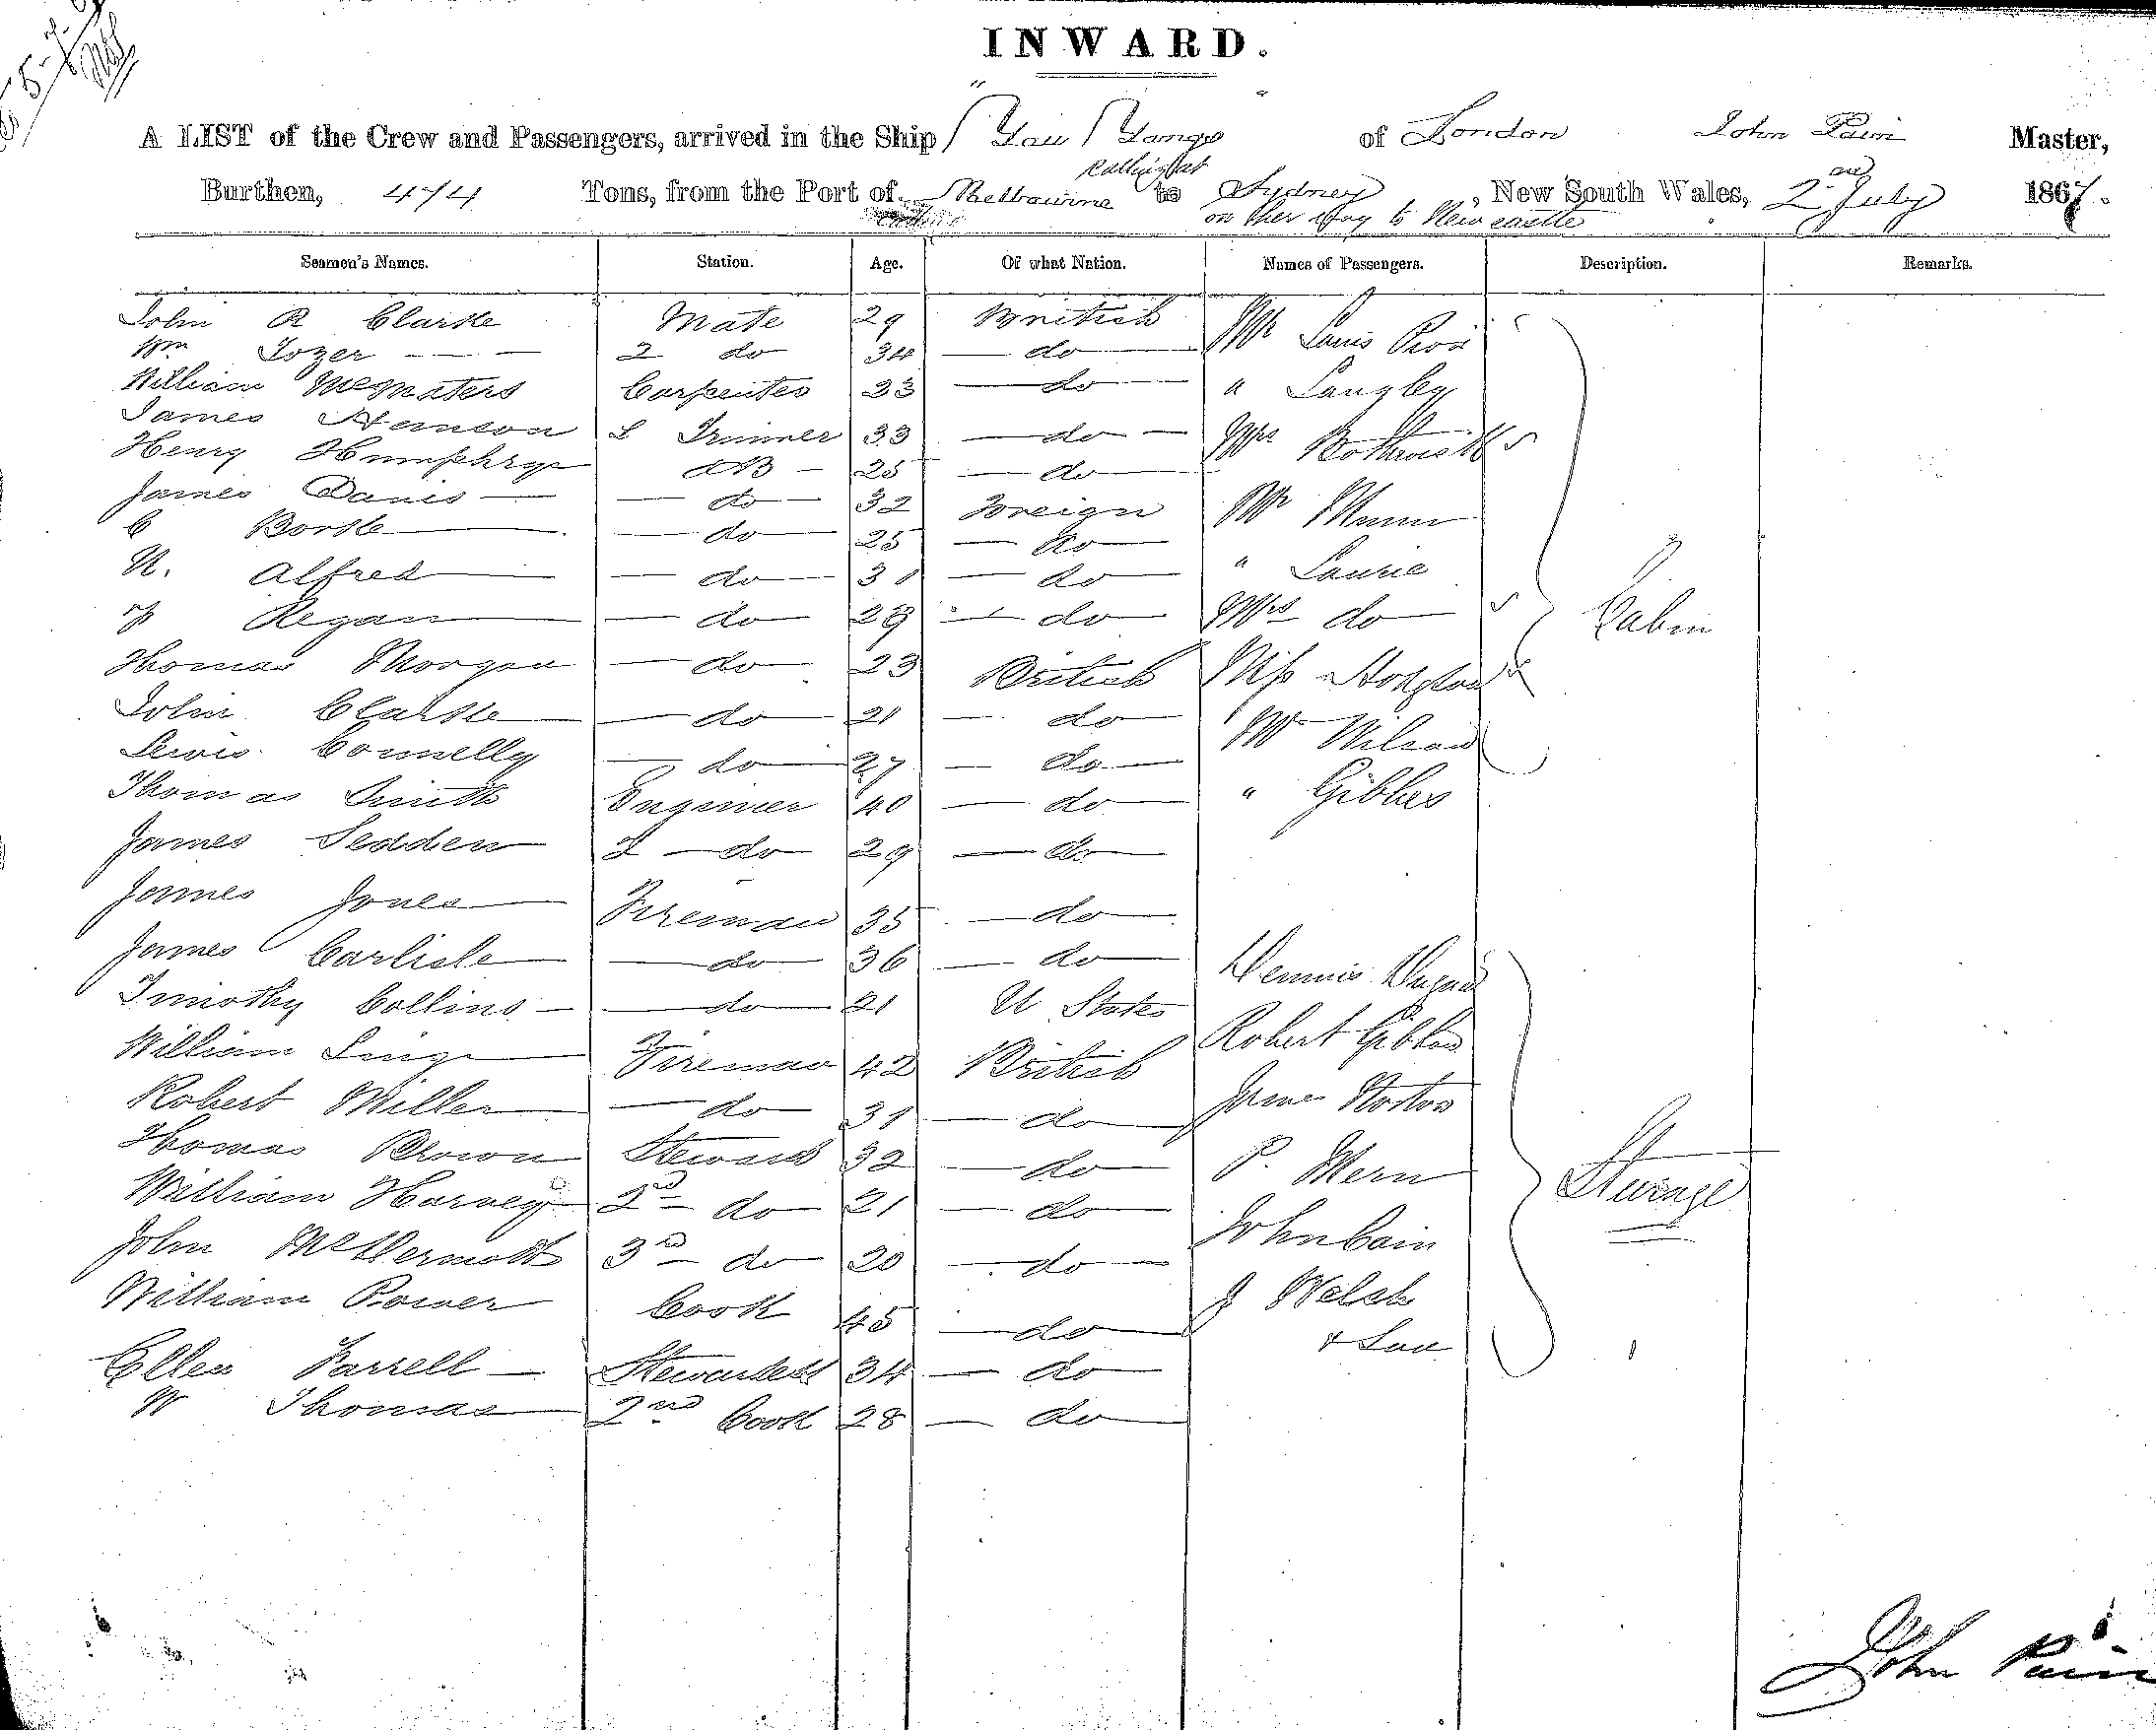 INWARD.
A LIST of the Crew and Passengers, arrived in the Ship "You Yangs" of London John Pain Master,
calling at
Burthen, 474 Tons, from the Port of Melbourne to Sydney, New South Wales, 2nd July 1867.
on her way to Newcastle
Seamen's Names. Station. Age. Of what Nation. Names of Passengers. Description. Remarks.
John R Clarke Mate 29 British Mr Louis
Wm Tozer 2 do 34 do
William McMasters Carpenter 33 do " Langley
James L Trimmer 33 do Mrs Bothwick
Henry Humphrys AB 25 do
James Danis do 32 Foreign Mr Munn
C do 25 do
N. Alfred do 31 do " Laurie
P Regan do 29 do Mrs do Cabin
Thomas Morgan do 23 British Miss
John Clarke do 21 do Mr Wilson
Lewis Connelly do 27 do
Thomas Smith Engineer 40 do " Gibbes
James Sedden 2 do 29 do
James Jones Fireman 35 do
James Carlisle do 36 do Dennis
Timothy Collins do 21 U States
William Fireman 42 British Robert
Robert Miller do 31 do Norton
Thomas Brown Steward 32 do P. Mern
William Harvey 2nd do 21 do Steerage
John McDermott 3rd do 20 do John Cain
William Power Cook 45 do J Welsh
& Son
Ellen Farrell Stewardess 34 do
W Thomas 2nd Cook 28 do
John Pain